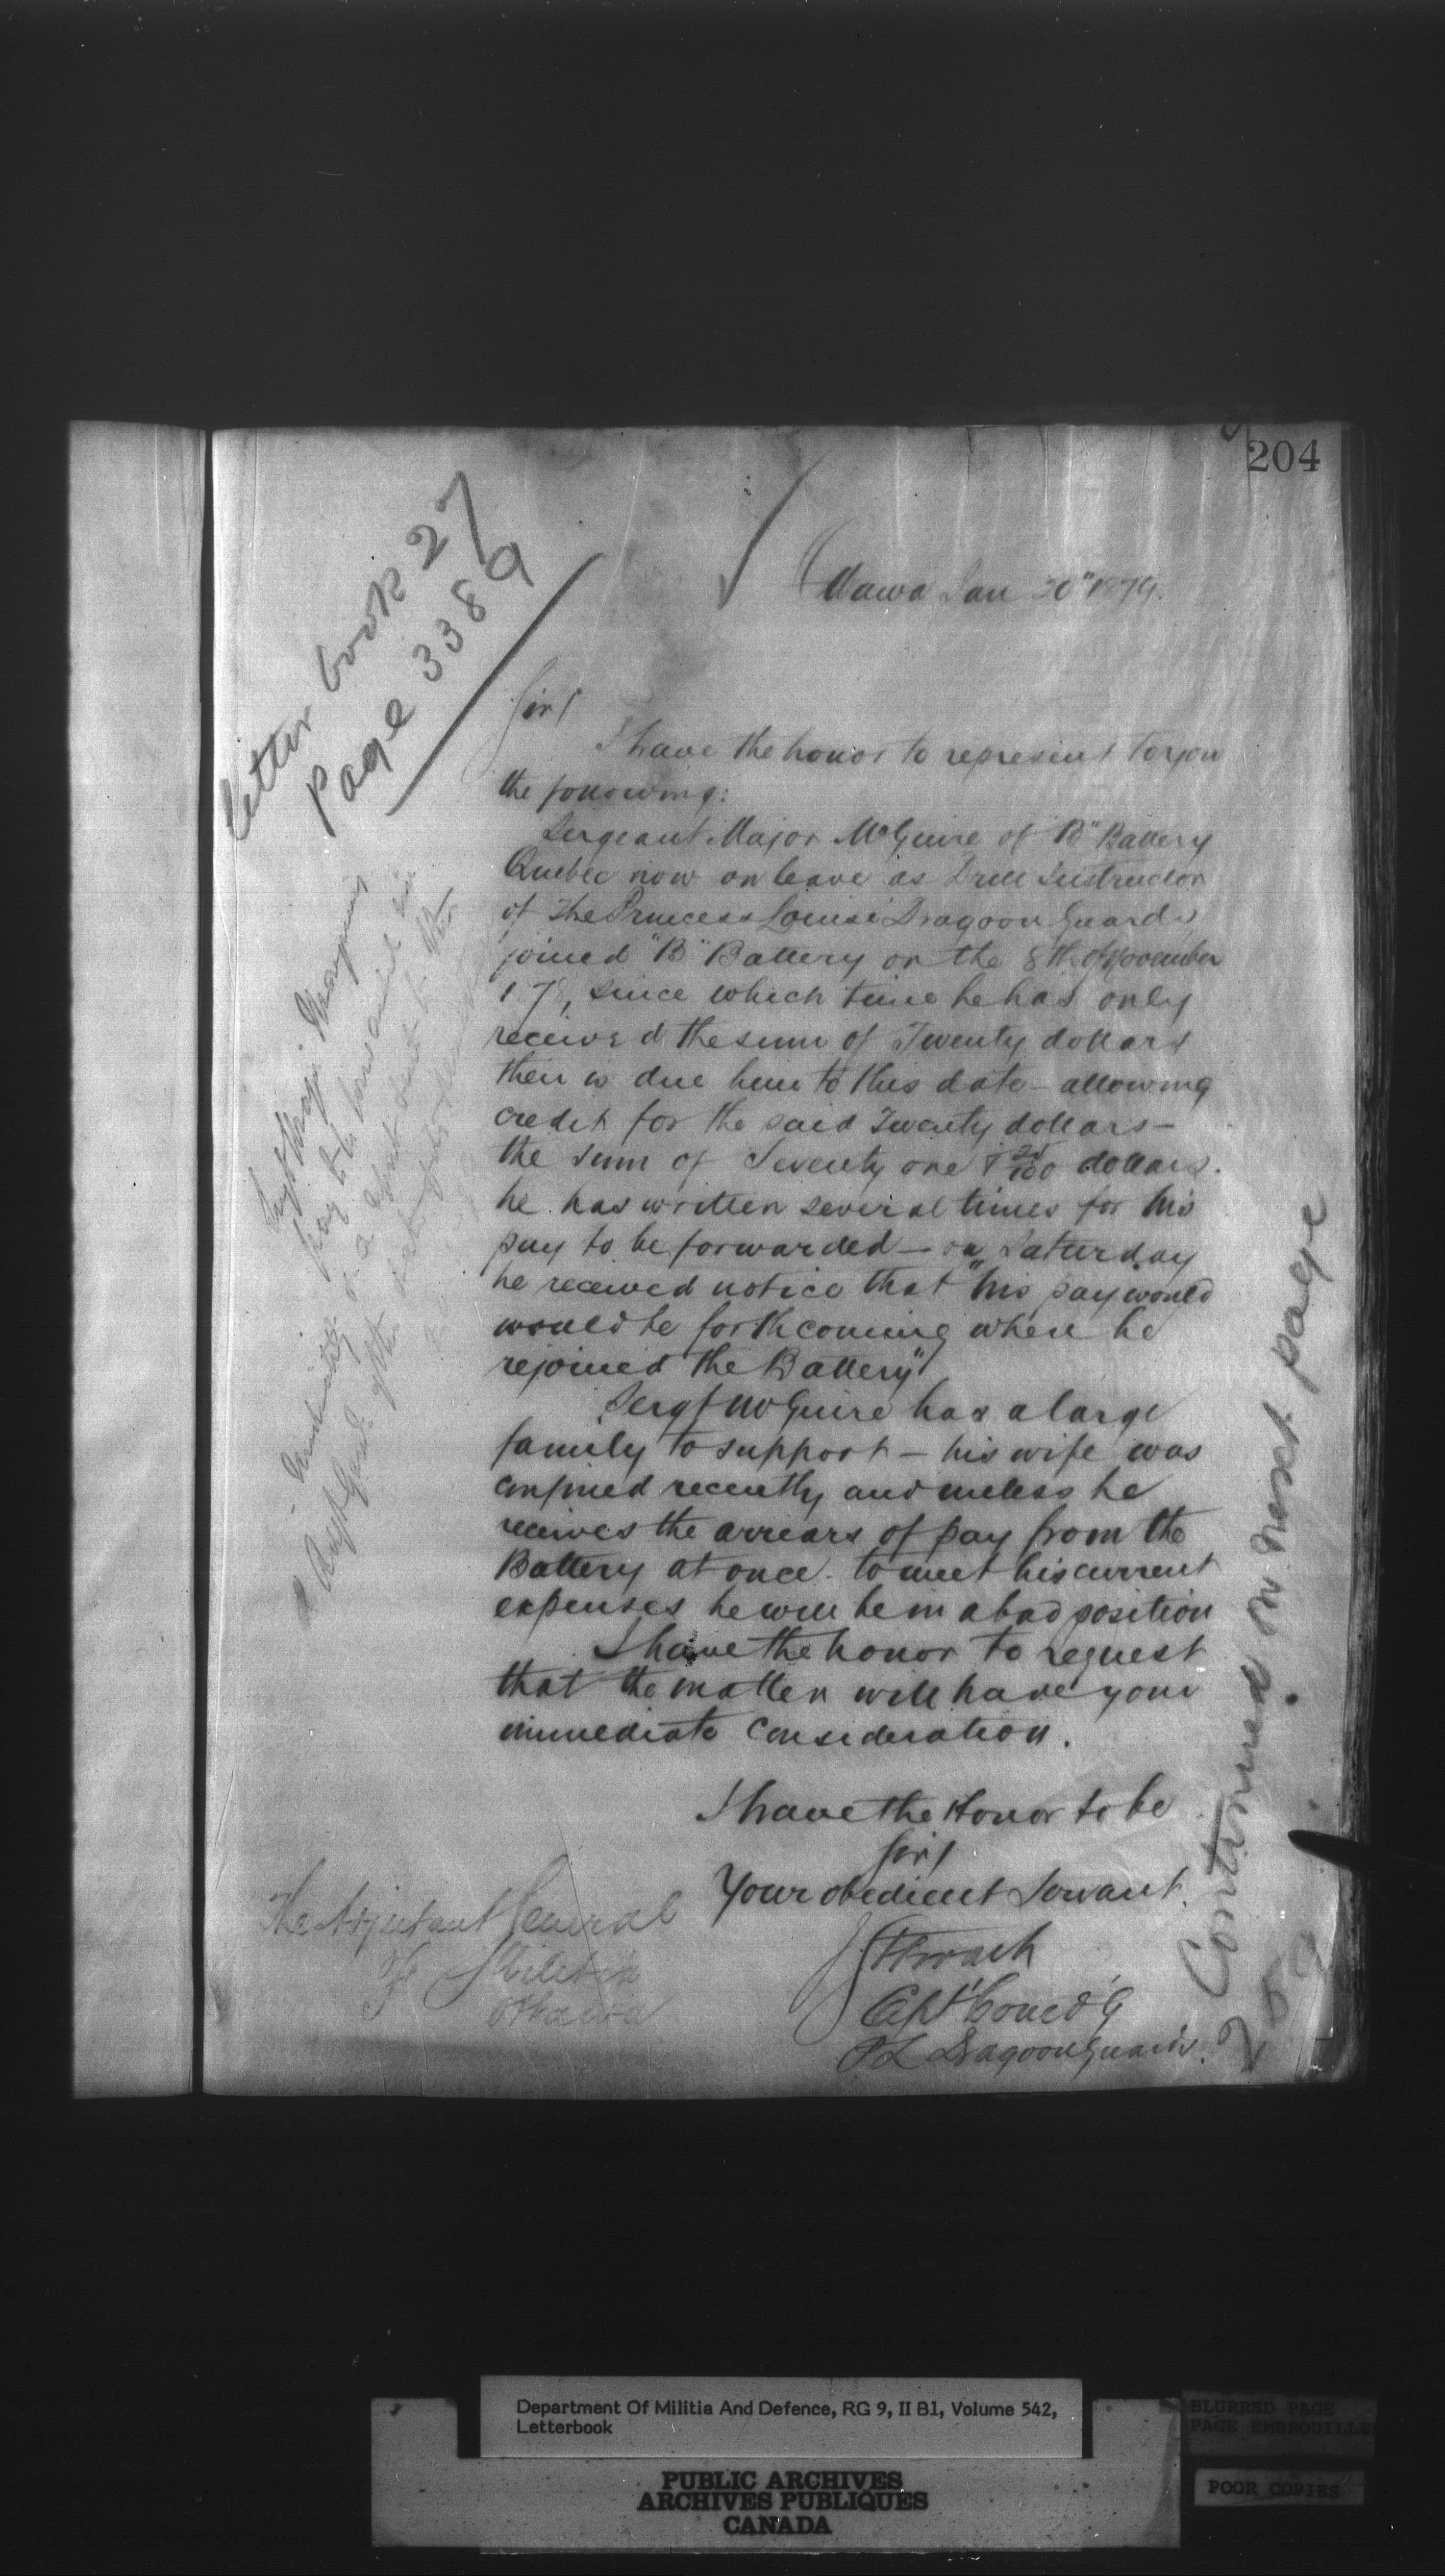 204
Letter book 27
page 3389
Ottawa Jan 20" 1879.
Sir/
I have the honor to represent to you
the following:
Sergeant Major McGuire of "B" Battery
Quebec now on leave as Drill Instructor
of The Princess Louise Dragoon Guards
joined "B" Battery on the 8th of November
1878, since which time he has only
received the sum of Twenty dollars
their is due him to this date - allowing
credit for the said Twenty dollars -
the sum of Seventy one & 25/100 dollars.
he has written several times for his
pay to be forwarded - on Saturday
he received notice that "his pay would
would be forthcoming when he
rejoined the Battery"
Sergt McGuire has a large
family to support - his wife was
confined recently and unless he
receives the arrears of pay from the
Battery at once to meet his current
expenses he will be in a bad position
I have the honor to request
that the matter will have your
immediate consideration.
I have the Honor to be
Sir/
Your obedient Servant.
Capt Comdg
P L Dragoon Guards.
The Adjutant General
of Militia
Ottawa
Continued on next page
Department Of Militia And Defence, RG 9, II B1, Volume 542,
Letterbook
PUBLIC ARCHIVES
ARCHIVES PUBLIQUES
CANADA
BLURRED PAGE
PAGE EMBROUILLE
POOR COPIES